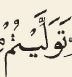 تَوَلَّيْتُمْ